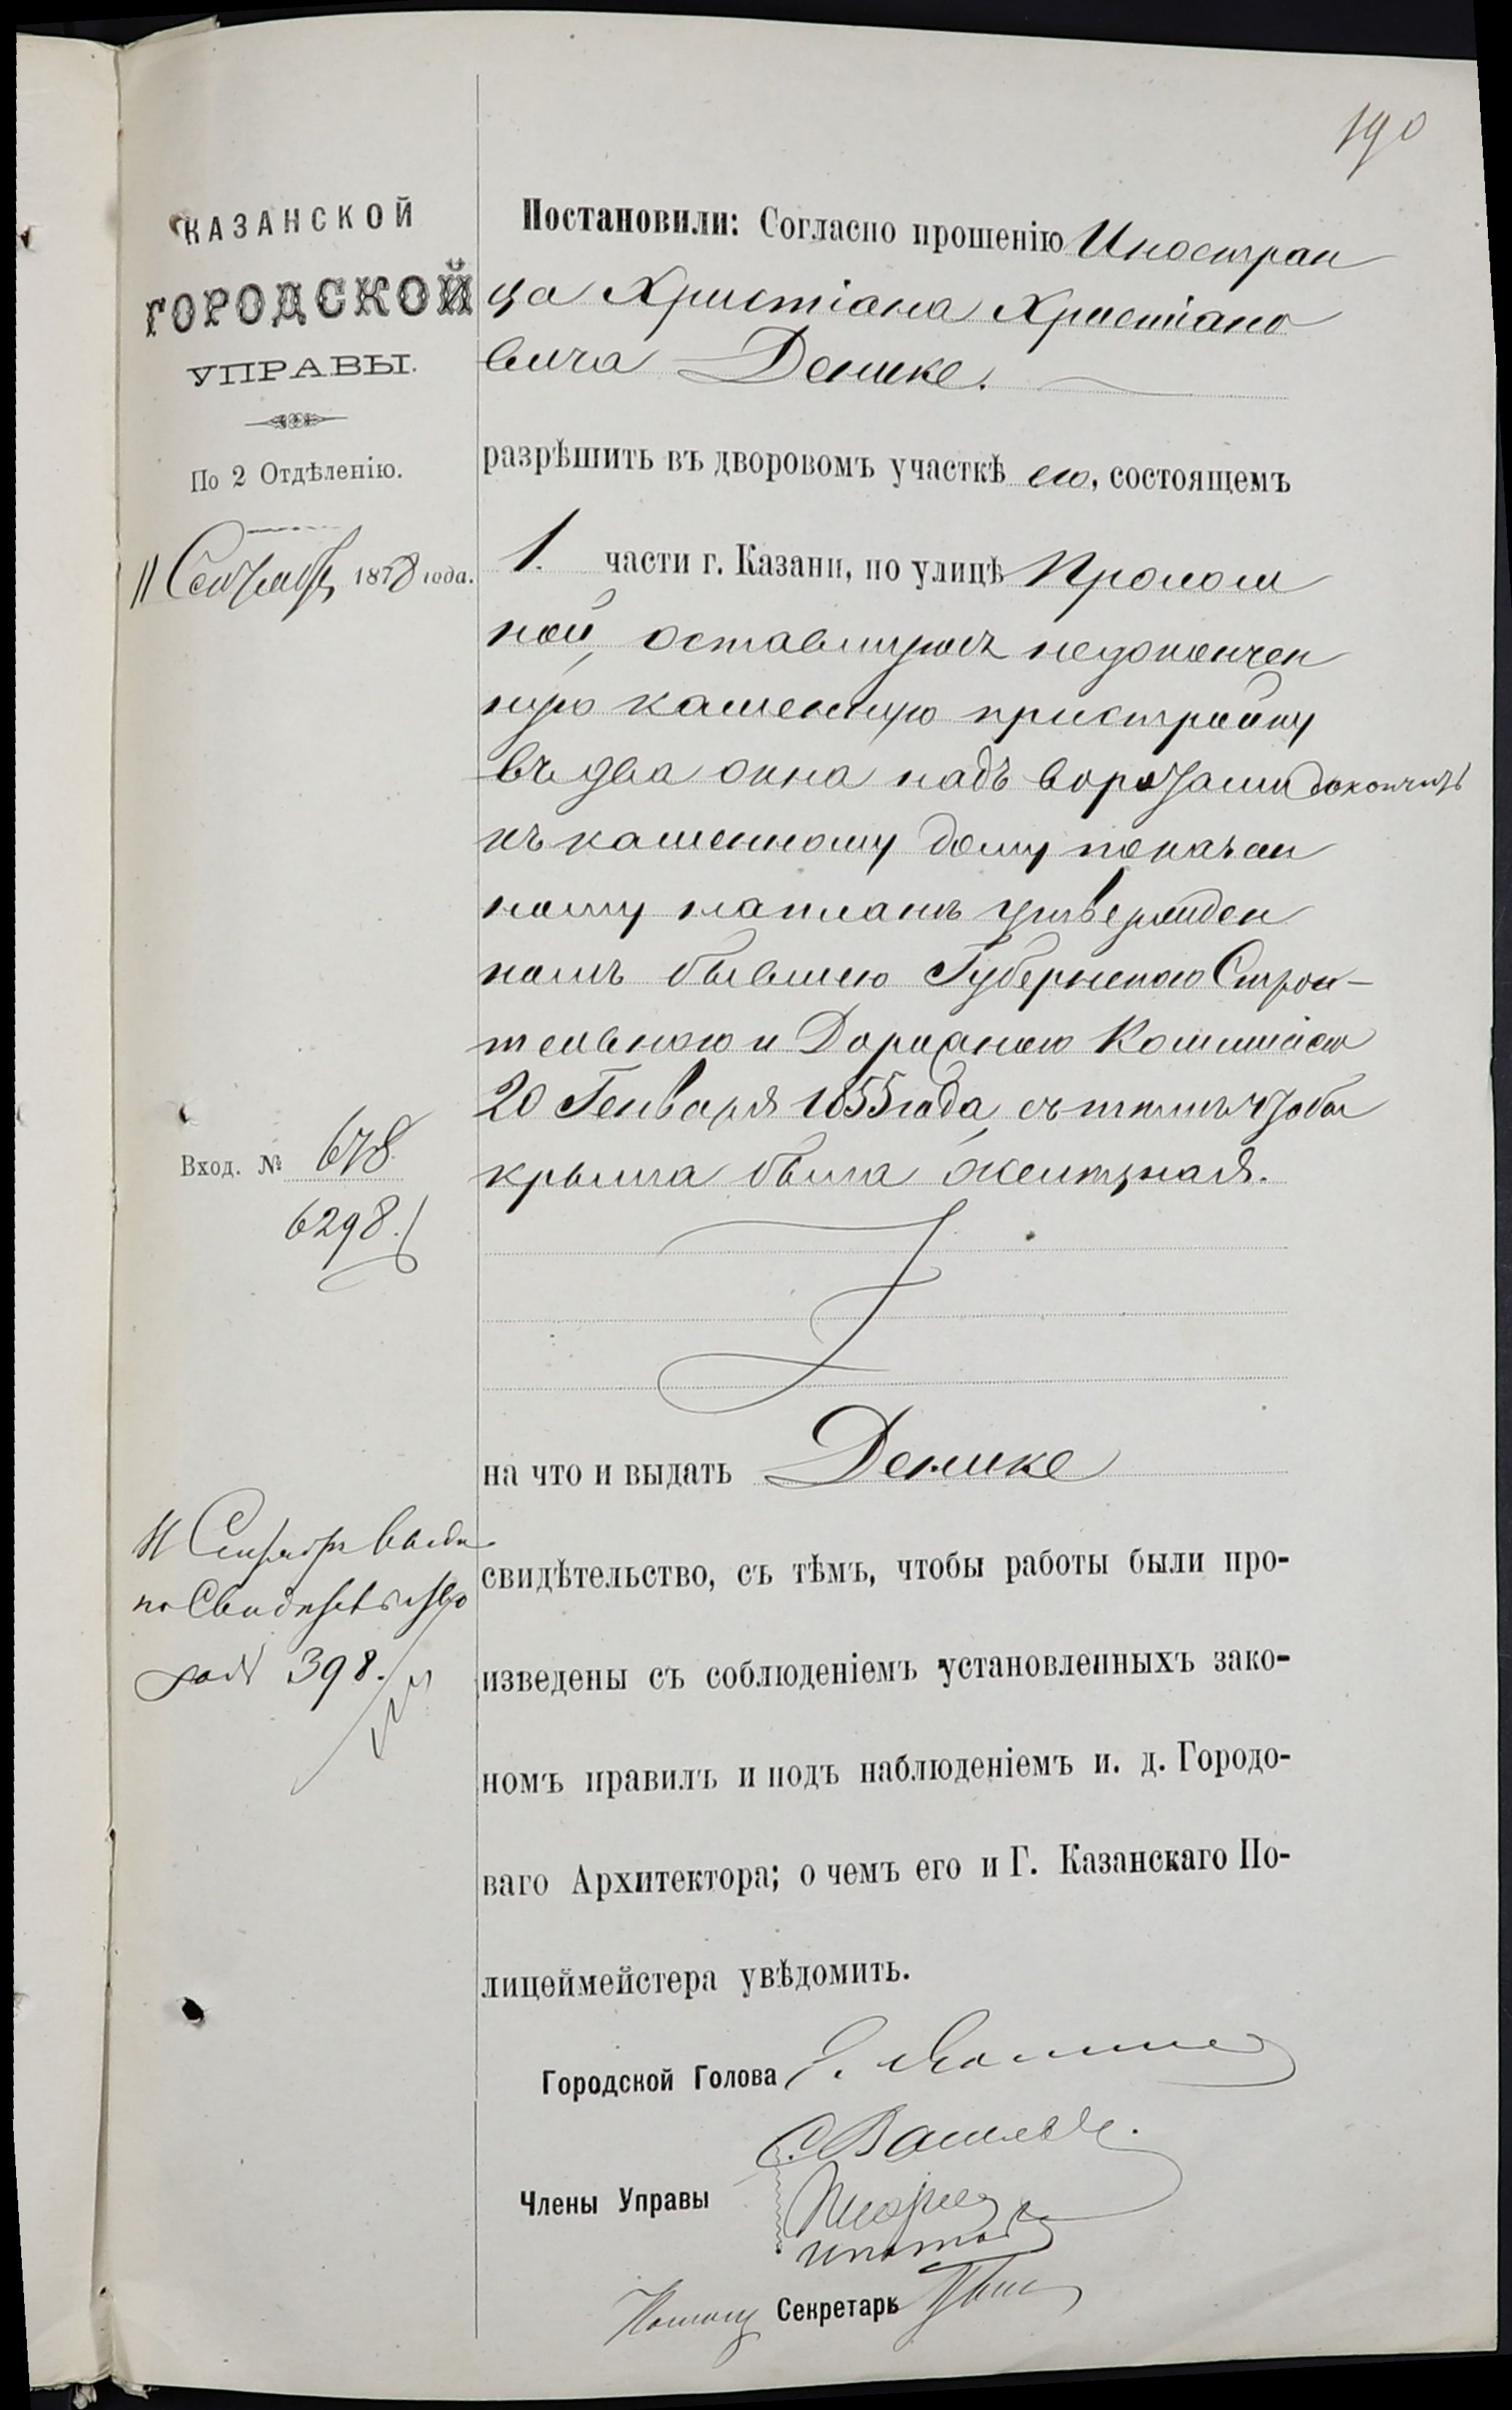 190
КАЗАНСКОЙ
ГОРОДСКОЙ
УПРАВЫ.
По 2 Отдѣленію.
11 Сентября 1878 года.
Вход. № 678
6298.
11 Сентября выда
но Свидетельство
за № 398.
Постановили: Согласно прошенію Иностран
ца Христіана Христіано
вича Денике.
разрѣшить въ дворовомъ участкѣ его, состоящемъ
1. части г. Казани, по улицѣ Пролом
ной, оставшуюся недокончен
ную каменную пристройку
въ два окна надъ воротами докончить
къ каменному дому показан
ному на планѣ утвержден
номъ бывшею Губернскою Строи-
тельною и Дорожною Коммиссіею
20 Генваря 1855 года, съ тѣмъ чтобы
крыша была желѣзная.
на что и выдать Денике
свидѣтельство, съ тѣмъ, чтобы работы были про-
изведены съ соблюденіемъ установленныхъ зако-
номъ правилъ и подъ наблюденіемъ и. д. Городо-
ваго Архитектора; о чемъ его и Г. Казанскаго По-
лицеймейстера увѣдомить.
Городской Голова
Члены Управы
Секретарь